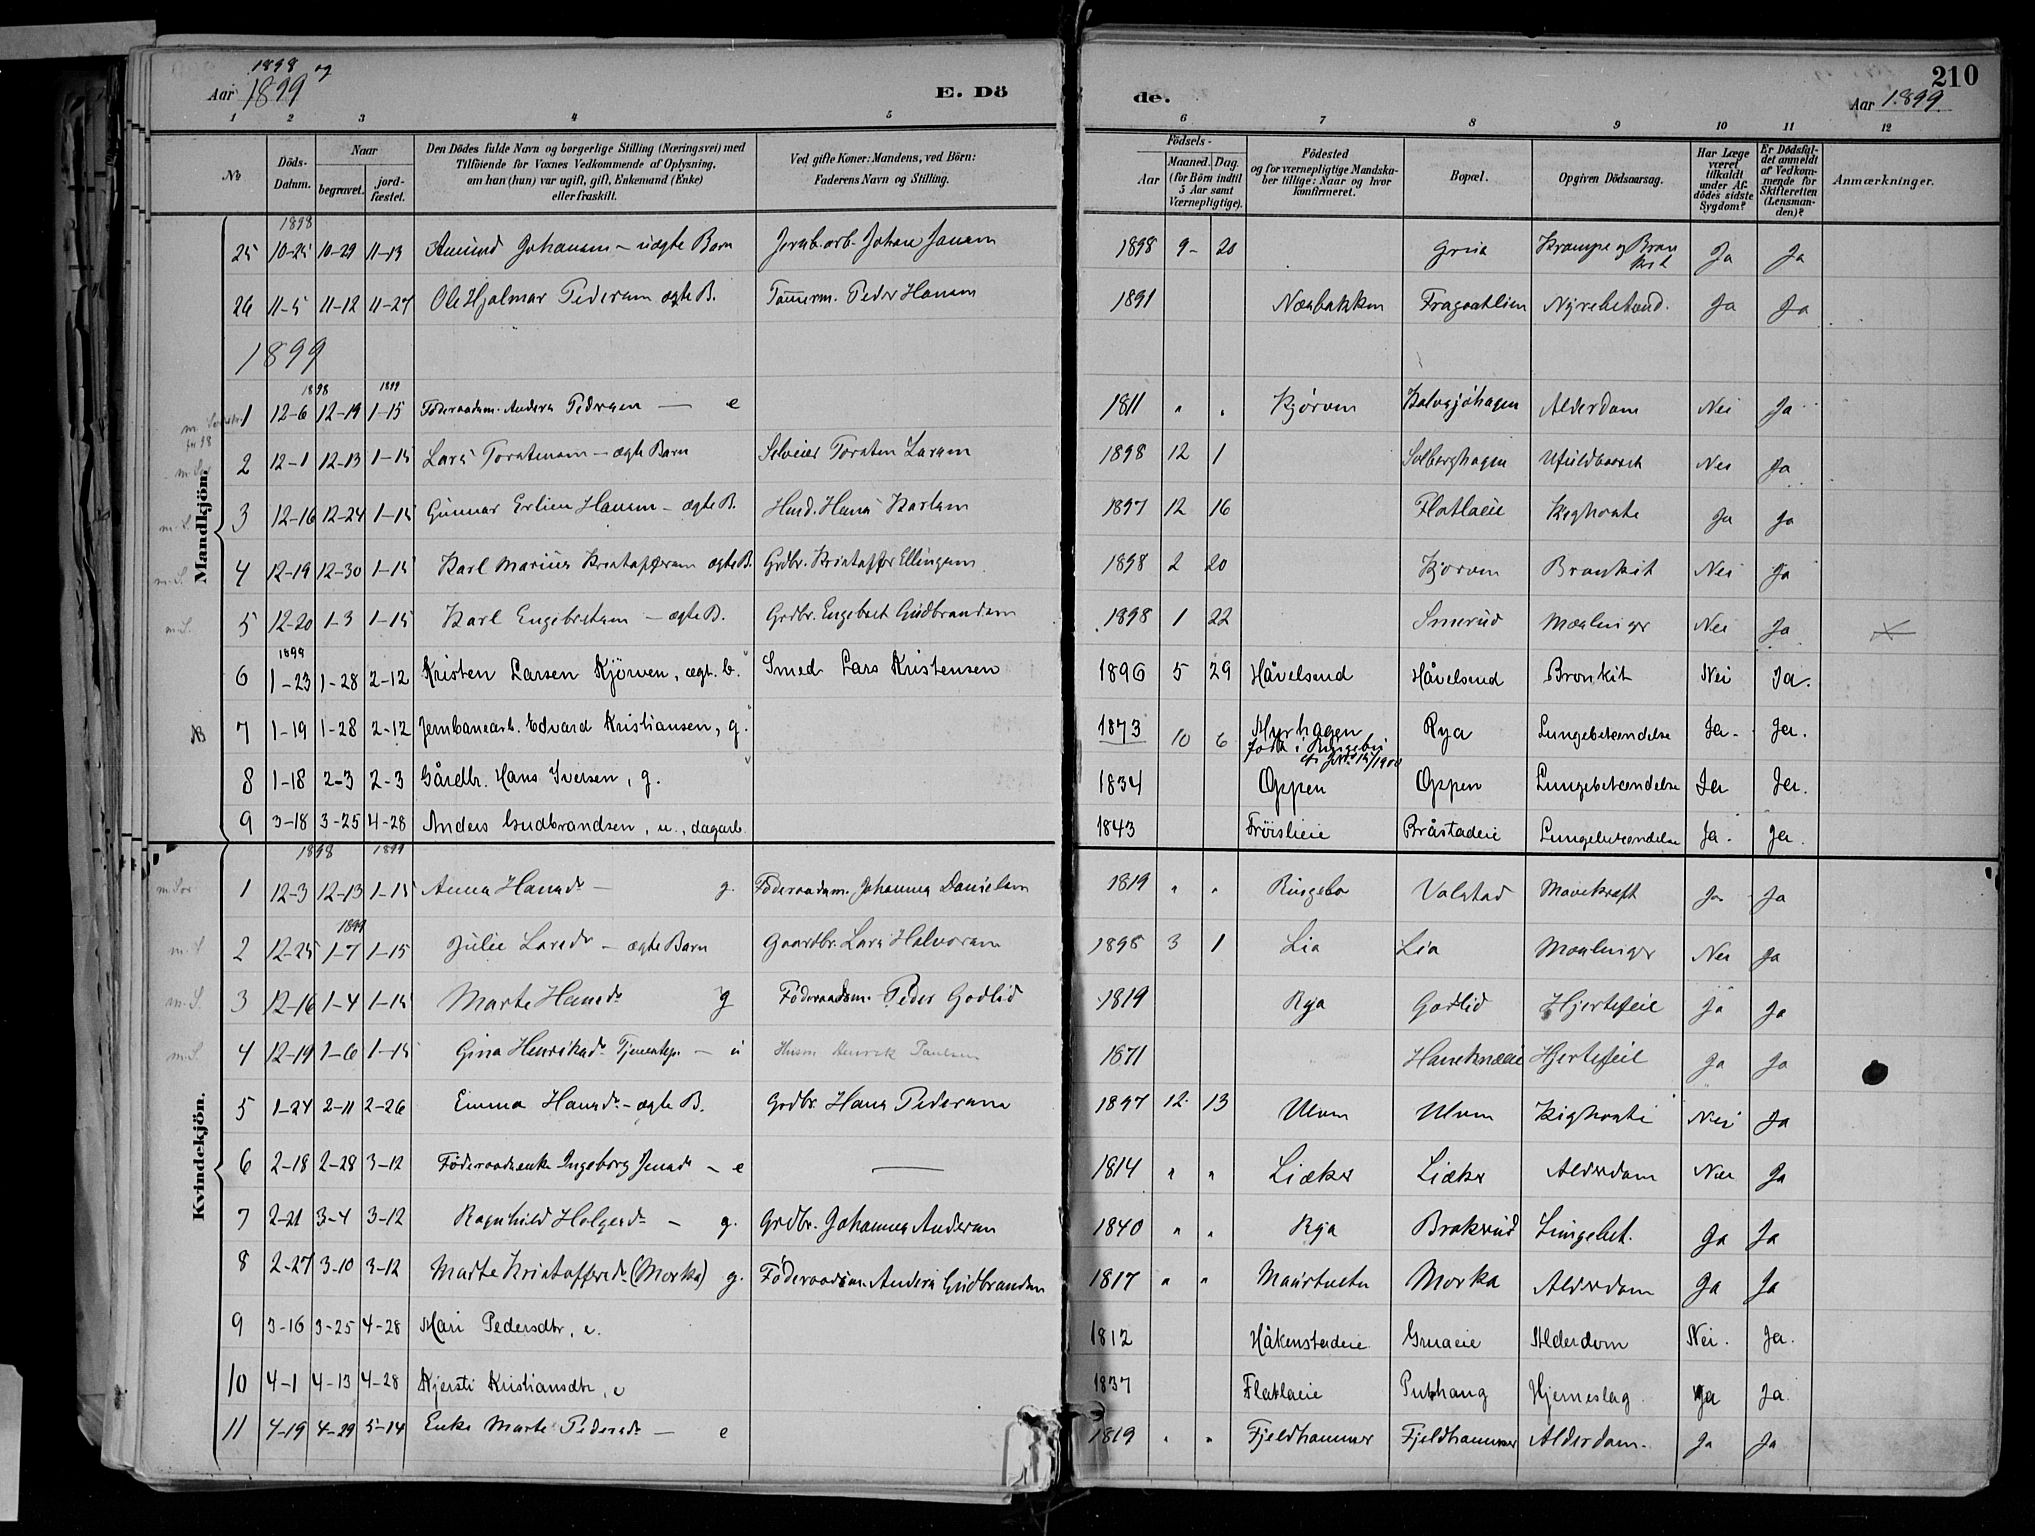 1898 og
Aar 1899
E. Dö
de.
210
Aar 1899
1 2 3 4 5 6 7 8 9 10 11 12
No
Döds-Datum.
Naar
begravet.
jord-fæstet.
Den Dödes fulde Navn og borgerlige Stilling (Næringsvei) med
Tilföiende for Voxnes Vedkommende af Oplysning,
om han (hun) var ugift, gift, Enkemand (Enke)
eller fraskilt.
Ved gifte Koner: Mandens, ved Börn:
Faderens Navn og Stilling.
Födsels-
Aar
Maaned. Dag.
(for Börn indtil
5 Aar samt
Værnepligtige).
Födested
og for værnepligtige Mandska-
ber tillige: Naar og hvor
konfirmeret.
Bopæl.
Opgiven Dödsaarsag.
Har Læge
været
tilkaldt
under Af-
dödes sidste
Sygdom?
Er Dödsfal-
det anmeldt
af Vedkom-
mende for
Skifteretten
(Lensman-
den)?
Anmærkninger.
Mandkjön.
1898
25 10-25 10-29 11-13 Amund Johansen - uægte Barn Jernb.arb. Johan Jansen 1898 9 - 20 Grua Krampe og Bronkit Ja Ja
26 11-5 11-12 11-27 Ole Hjalmar Pedersen ægte B. Tømmerm. Peder Hansen 1891 Næsbakken Fragoatlien Nyrebetænd. Ja Ja
1899
1898 1899
1 12-6 12-19 1-15 Føderaadsm. Anders Pedersen — e 1811 " " Kjørven Kalvsjøhagen Alderdom Nei Ja
2 12-1 12-13 1-15 Lars Torstensen - ægte Barn Selveier Torsten Larsen 1898 12 1 Solberghagen Ufuldbaaret Nei Ja
m. S. 3 12-16 12-24 1-15 Gunnar Erlien Hansen - ægte B. Husd. Hans Karlsen 1897 12 16 Flatlaeie Kighoste Ja Ja
m. S. 4 12-19 12-30 1-15 Karl Marius Kristoffersen ægte B. Grdbr. Kristoffer Ellingsen 1898 2 20 Kjørven Bronkit Nei Ja
m. S. 5 12-20 1-3 1-15 Karl Engebretsen - ægte B. Grdbr. Engebret Gudbrandsen 1898 1 22 Smerud Mæslinger Nei Ja X
1899
6 1-23 1-28 2-12 Kristen Larsen Kjörven, ægt. b. Smed Lars Kristensen 1896 5 29 Håvelsrud Håvelsrud Bronkit Nei Ja.
NB 7 1-19 1-28 2-12 Jernbanearb. Edvard Kristiansen, g. 1873 10 6 Myrhagen Rya Lungebetændelse Ja. Ja.
født i Ringebu
8 1-18 2-3 2-3 Gårdbr. Hans Iversen, g. 1834 Oppen Oppen Lungebetændelse Ja Ja.
9 3-18 3-25 4-28 Anders Gudbrandsen, u., dagarb. 1843 Frøislieie Bråstadeie Lungebetændelse Ja. Ja.
Kvindekjön.
1898 1899
1 12-3 12-13 1-15 Anna Hansdr — g. Føderaadsm. Johannes Danielsen 1819 " " Ringebo Volstad Mavekræft Ja Ja
1899
m. S 2 12-25 1-7 1-15 Julie Larsdr - ægte Barn Gaardbr. Lars Halvorsen 1895 3 1 Lia Lia Mæslinger Nei Ja
m. S. 3 12-16 1-4 1-15 Marte Hansdr g Føderaadsm. Peder Godlid 1819 Rya Godlid Hjertefeil Ja Ja
m. S. 4 12-19 1-6 1-15 Gina Henriksdr Tjenestep. - u Husm Henrik Paulsen 1871 Haneknæeie Hjertefeil Ja Ja
5 1-24 2-11 2-26 Emma Hansdr - ægte B. Grdbr. Hans Pedersen 1897 12 13 Ulven Ulven Kighoste Nei Ja
6 2-18 2-28 3-12 Føderaadsenke Ingeborg Jensdr - e — 1814 " " Liæker Liæker Alderdom Nei Ja
7 2-21 3-4 3-12 Ragnhild Holgersdr — g. Grdbr. Johannes Andersen 1840 " " Rya Brakrud Lungebet. Ja Ja
8 2-27 3-10 3-12 Marte Kristoffersdr (Morka) g. Føderaadsm. Anders Gudbrandsen 1817 " " Maurtuten Morka Alderdom Ja Ja
9 3-16 3-25 4-28 Mari Pedersdtr, e. 1812 Håkenstadeie Gruaeie Alderdom Nei. Ja.
10 4-1 4-13 4-28 Kjersti Kristiansdtr, e 1837 Flatlaeie Puthaug Hjerneslag Ja Ja.
11 4-19 4-29 5-14 Enke Marte Pedersdr — e 1819 " " Fjeldhammer Fjeldhammer Alderdom. Ja Ja